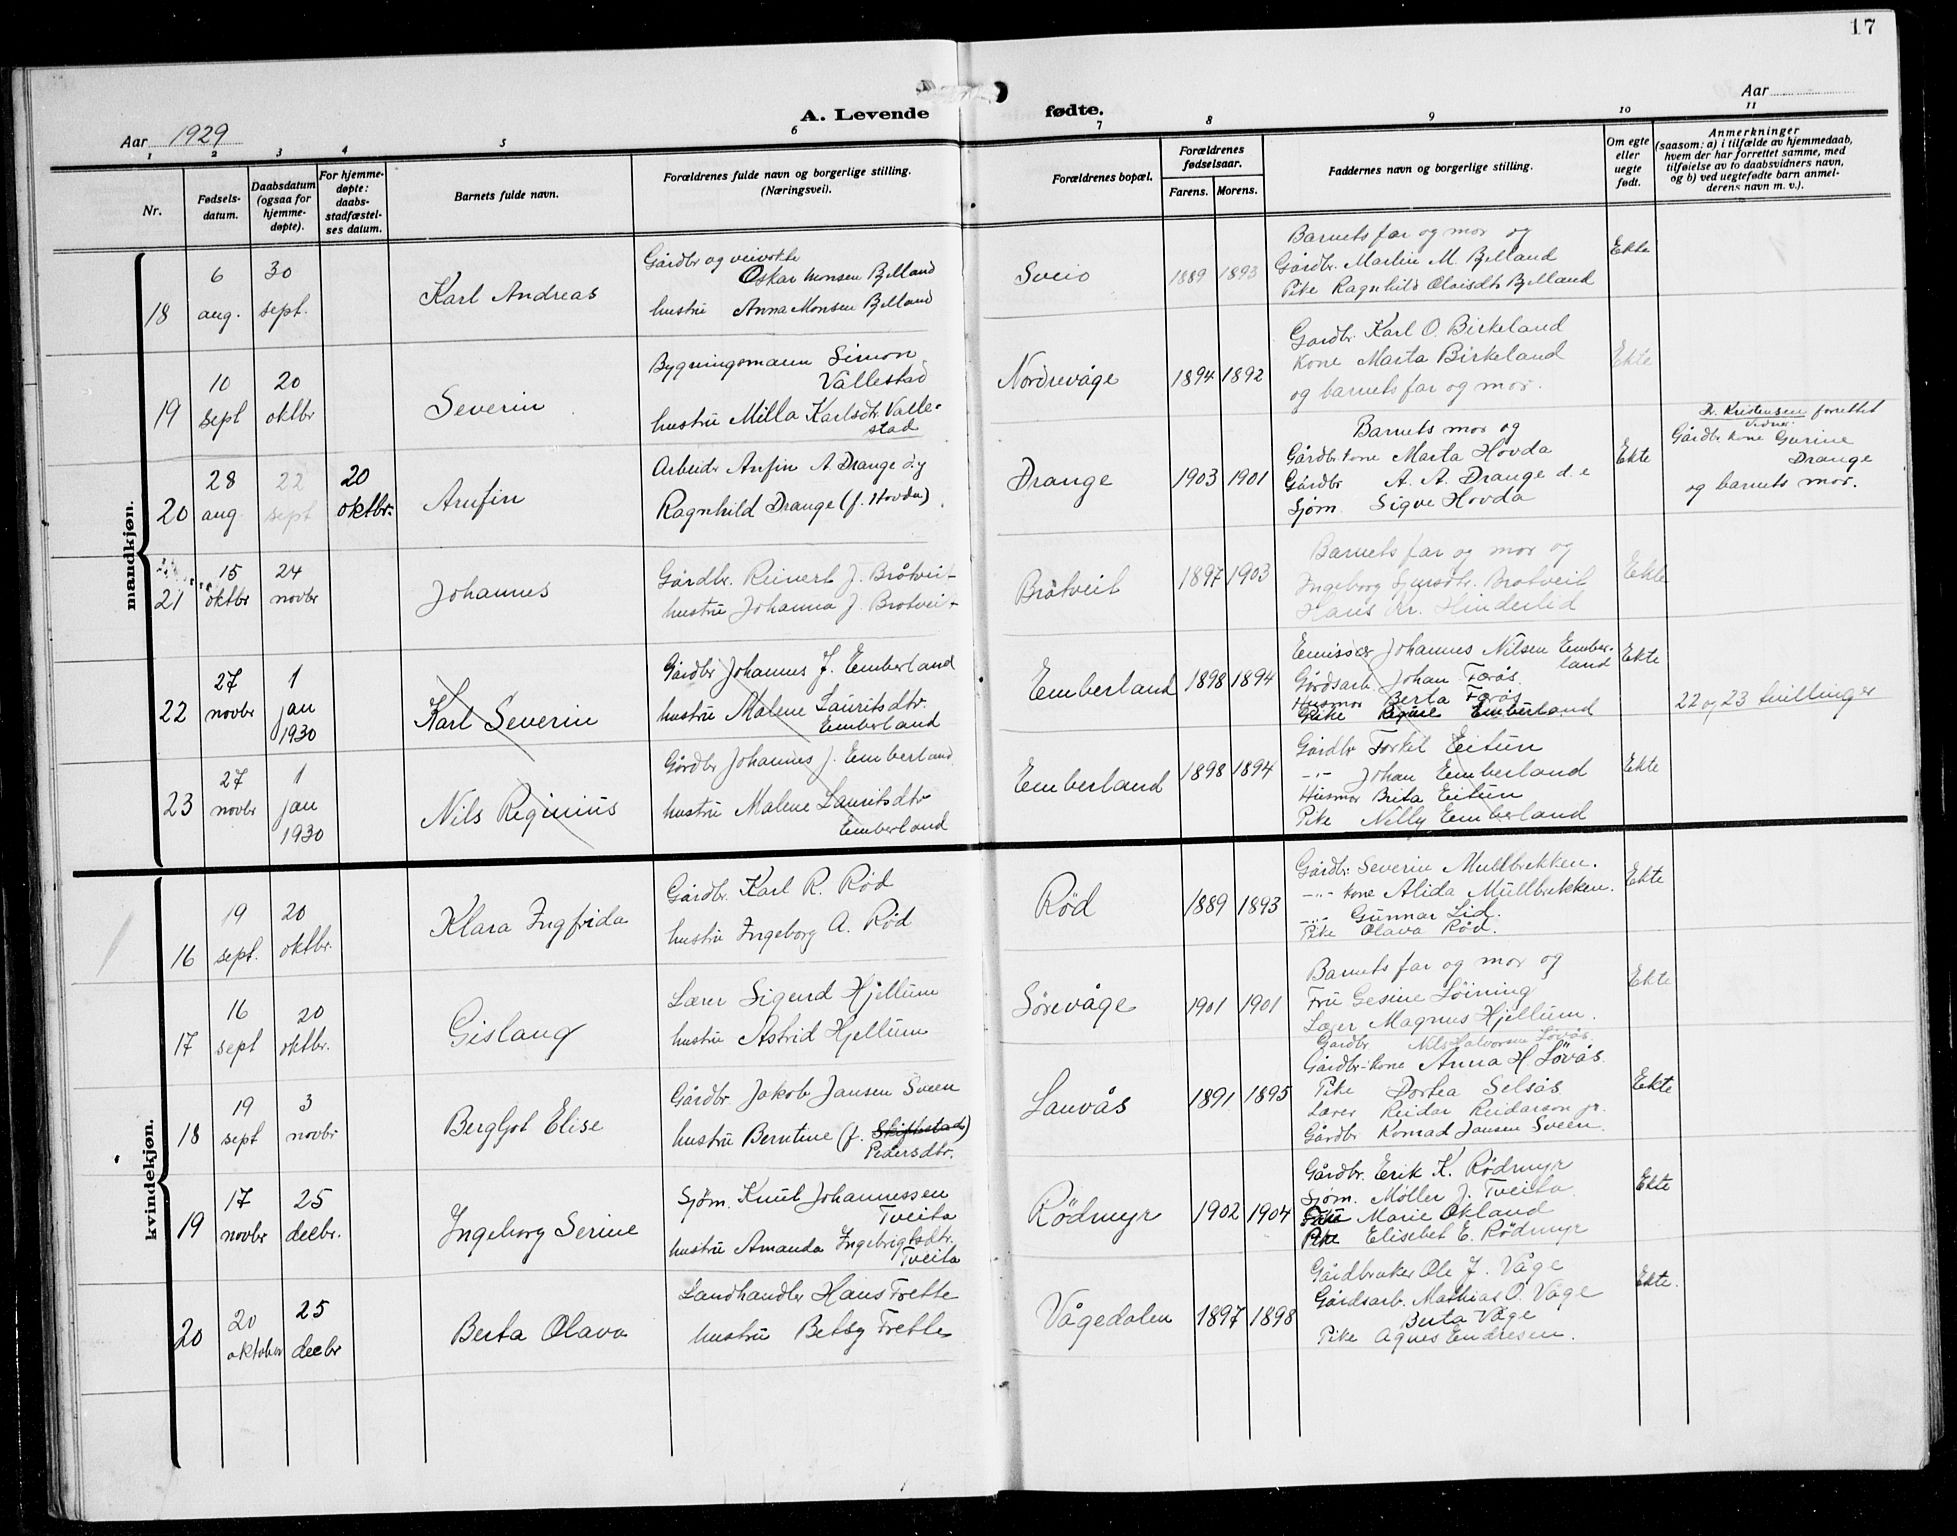 17
A. Levende fødte.
Aar 1929
Aar
1 2 3 4 5 6 7 8 9 10 11
Nr.
Fødsels-
datum.
Daabsdatum
(ogsaa for
hjemme-
døpte).
For hjemme-
døpte:
daabs-
stadfæstel-
ses datum.
Barnets fulde navn.
Forældrenes fulde navn og borgerlige stilling.
(Næringsvei).
Forældrenes bopæl.
Forældrenes
fødselsaar.
Farens. Morens.
Faddernes navn og borgerlige stilling.
Om egte
eller
uegte
født.
Anmerkninger
(saasom: a) i tilfælde av hjemmedaab,
hvem der har forrettet samme, med
tilføielse av to daabsvidners navn,
og b) ved uegtefødte barn anmel-
derens navn m. v.).
mandkjøn.
18
6
aug.
30
sept.
Karl Andreas
Gårdbr og veivokte
Oskar Monsen Bjelland
hustru Anna Monsen Bjelland
Sveio
1889 1893
Barnets far og mor og
Gårdbr. Martin M. Bjelland
Pike Ragnhild Olaisdtr Bjelland
Ekte
19
10
sept
20
oktbr
Severin
Bygningsmann Simon
Vallestad
hustru Milla Karlsdtr. Valle-
stad
Nordrevåge
1894 1892
Gardbr. Karl O. Birkeland
Kone Marta Birkeland
og barnets far og mor.
Ekte
20
28
aug.
22
sept
20
oktbr.
Arnfin
Arbeidr Anfin A. Drange og
Ragnhild Drange (f. Hovda)
Drange
1903 1901
Barnets mor og
Gårdbr kone Marta Hovda
Gårdbr A. A. Drange d. e
Sjøm. Sigve Hovda
Ekte
Dr. Kristensen forrettet
Vidner:
Gårdbr kone Gurine
Drange
og barnets mor.
21
15
oktbr
24
novbr
Johannes
Gårdbr. Reinert J. Bråtveit
hustru Johanna J. Bråtveit
Bråtveit
1897 1903
Barnets far og mor og
Ingeborg Sjursdtr. Bråtveit
Hans Kr. Hinderlid
Ekte
22
27
novbr
1
jan
1930
Karl Severin
Gårdbr Johannes J. Emberland
hustru Malene Lauritsdtr.
Emberland
Emberland
1898 1894
Emissær Johannes Nilsen Ember-
land
Gårdsarb. Johan Færås
Husmor Berta Færås
Pike Emberland
Ekte
22 og 23 tvillinger
23
27
novbr
1
jan
1930
Nils Reginius
Gårdbr Johannes J. Emberland
hustru Malene Lauritsdtr
Emberland
Emberland
1898 1894
Gårdbr Torkel Eitun
-"- Johan Emberland
Husmor Brita Eitun
Pike Nelly Emberland
Ekte
kvindekjøn.
16
19
sept.
20
oktbr.
Klara Ingfrida
Gårdbr. Karl R. Rød
hustru Ingeborg A. Rød
Rød
1889 1893
Gårdbr. Severin Mulebrekken.
-"- kone Alida Mulebrekken.
-"- Gunnar Lid.
Pike Olava Rød.
Ekte
17
16
sept
20
oktbr.
Gislaug
Lærer Sigurd Hjellum
hustru Astrid Hjellum
Sørevåge
1901 1901
Barnets far og mor og
Fru Gesine Løining
Lærer Magnus Hjellum.
Ekte
18
19
sept
3
novbr
Bergljot Elise
Gårdbr. Jakob Jansen Sveen
hustru Berntine (f. Skiftestad)
Pedersdtr.
Lauvås
1891 1895
Gardbr Nils Halvorsen Lövås.
Gårdbr-kone Anna H. Lövås.
Pike Dortea Selsås
Lærer Reidar Reidarson jr.
Gårdbr Konrad Jansen Sveen.
Ekte
19
17
novbr
25
decbr.
Ingeborg Serine
Sjøm. Knut Johannessen
Tveita
hustru Amanda Ingebrigtsdtr.
Tveita
Rødmyr
1902 1904
Gårdbr. Erik K. Rødmyr
Sjøm. Møller J. Tveita
Marie Økland
Pike Elisebet E. Rødmyr
Ekte
20
20
oktober
25
decbr
Berta Olava
Landhandler Hans Trette
hustru Betsy Trette
Vågedalen
1897 1898
Gårdbruker Ole J. Våge
Gårdsarb. Mathias O. Våge
Berta Våge
Pike Agnes Endresen.
Ekte.